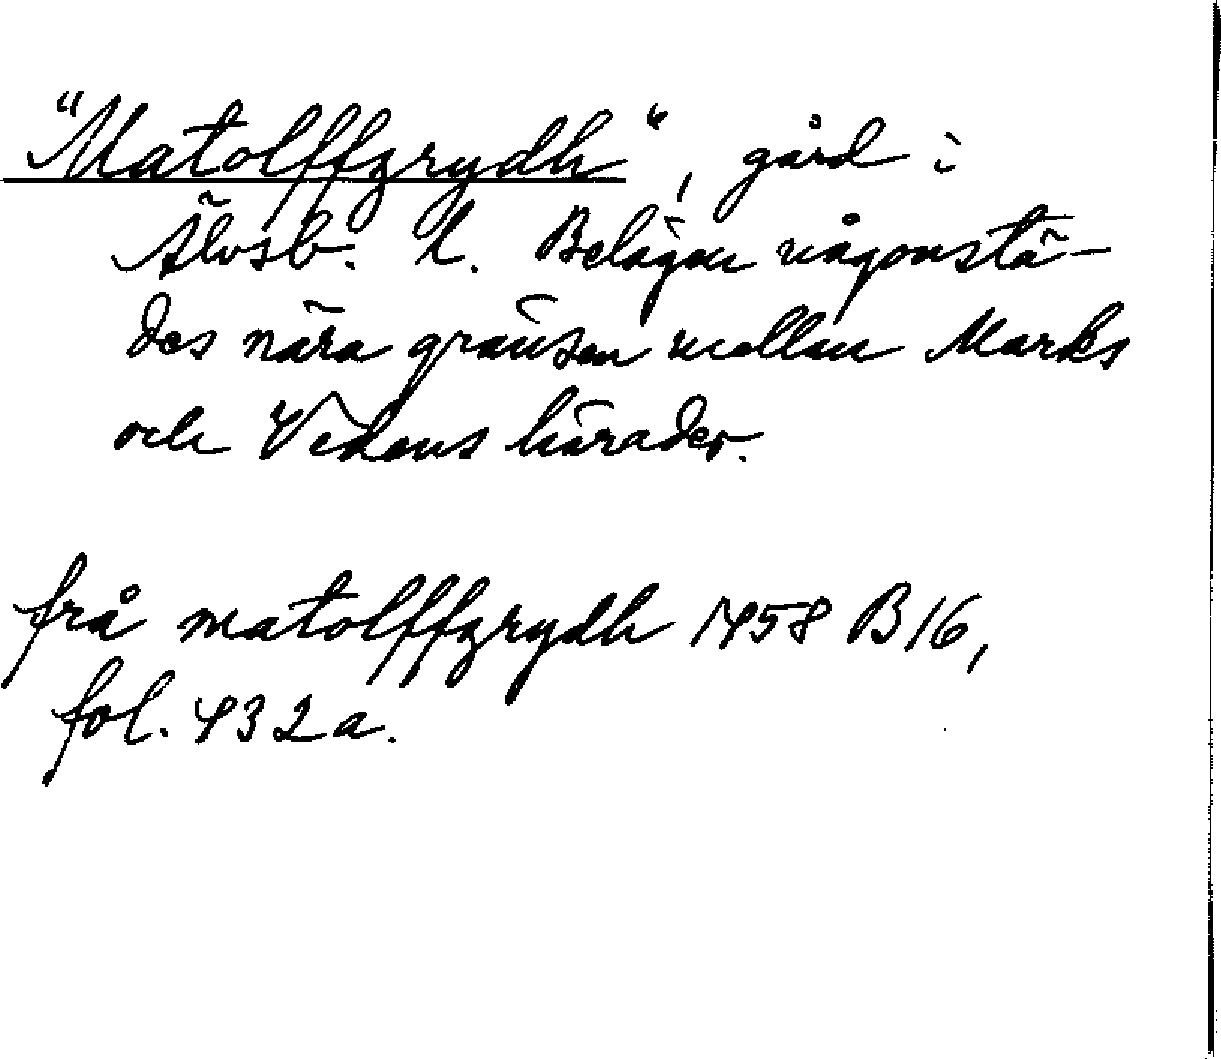 "Matolffzrydh", gård i
Älvsb. l. Belägen någonstä-
des nära gränsen mellan Marks
och Vedens härader.
från matolffzrydh 1458 B16,
fol. 432a.